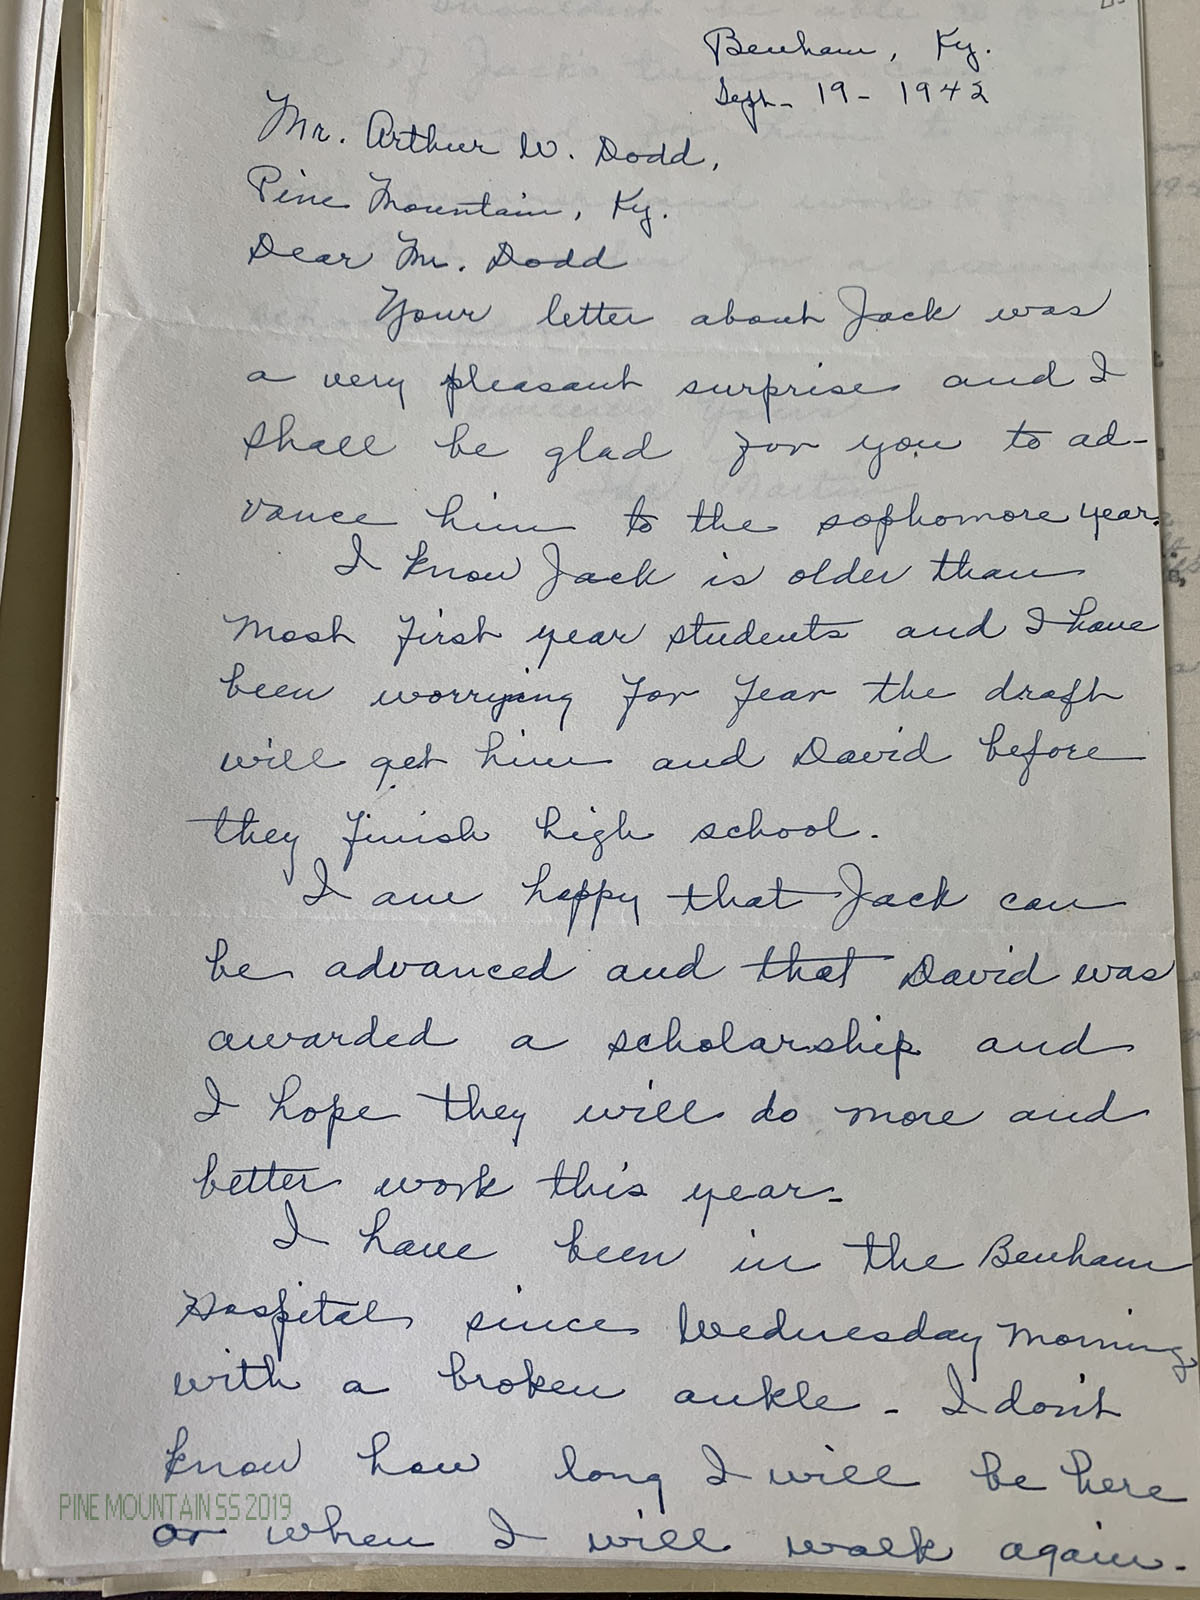 Benham, Ky.
Sept- 19- 1942
Mr. Arthur W. Dodd,
Pine Mountain, Ky.
Dear Mr. Dodd
Your letter about Jack was
a very pleasant surprise and I
shall be glad for you to ad-
vance him to the sophomore year.
I know Jack is older than
most first year students and I have
been worrying for fear the draft
will get him and David before
they finish high school.
I am happy that Jack can
be advanced and that David was
awarded a scholarship and
I hope they will do more and
better work this year-
I have been in the Benham
Hospital since Wednesday morning
with a broken ankle - I don't
know how long I will be here
or when I will walk again-
PINE MOUNTAIN SS 2019